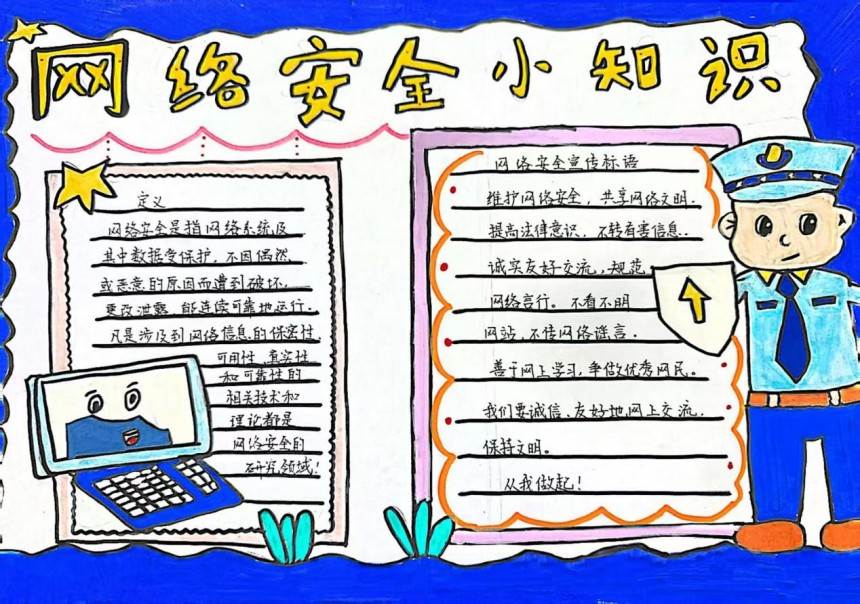 网络安全小知识
定义
网络安全是指网络系统及
其中数据受保护，不因偶然
或恶意的原因而遭到破坏，
更改泄露，能连续可靠地运行。
凡是涉及到网络信息的保密性，
可用性、真实性
和可靠性的
相关技术和
理论都是
网络安全的
研究领域！
网络安全宣传标语
维护网络安全，共享网络文明.
提高法律意识，不转有害信息..
诚实友好交流，规范
网络言行。不看不明
网站，不传网络谣言.
善于网上学习，争做优秀网民。
我们要诚信、友好地网上交流，
保持文明。
从我做起！